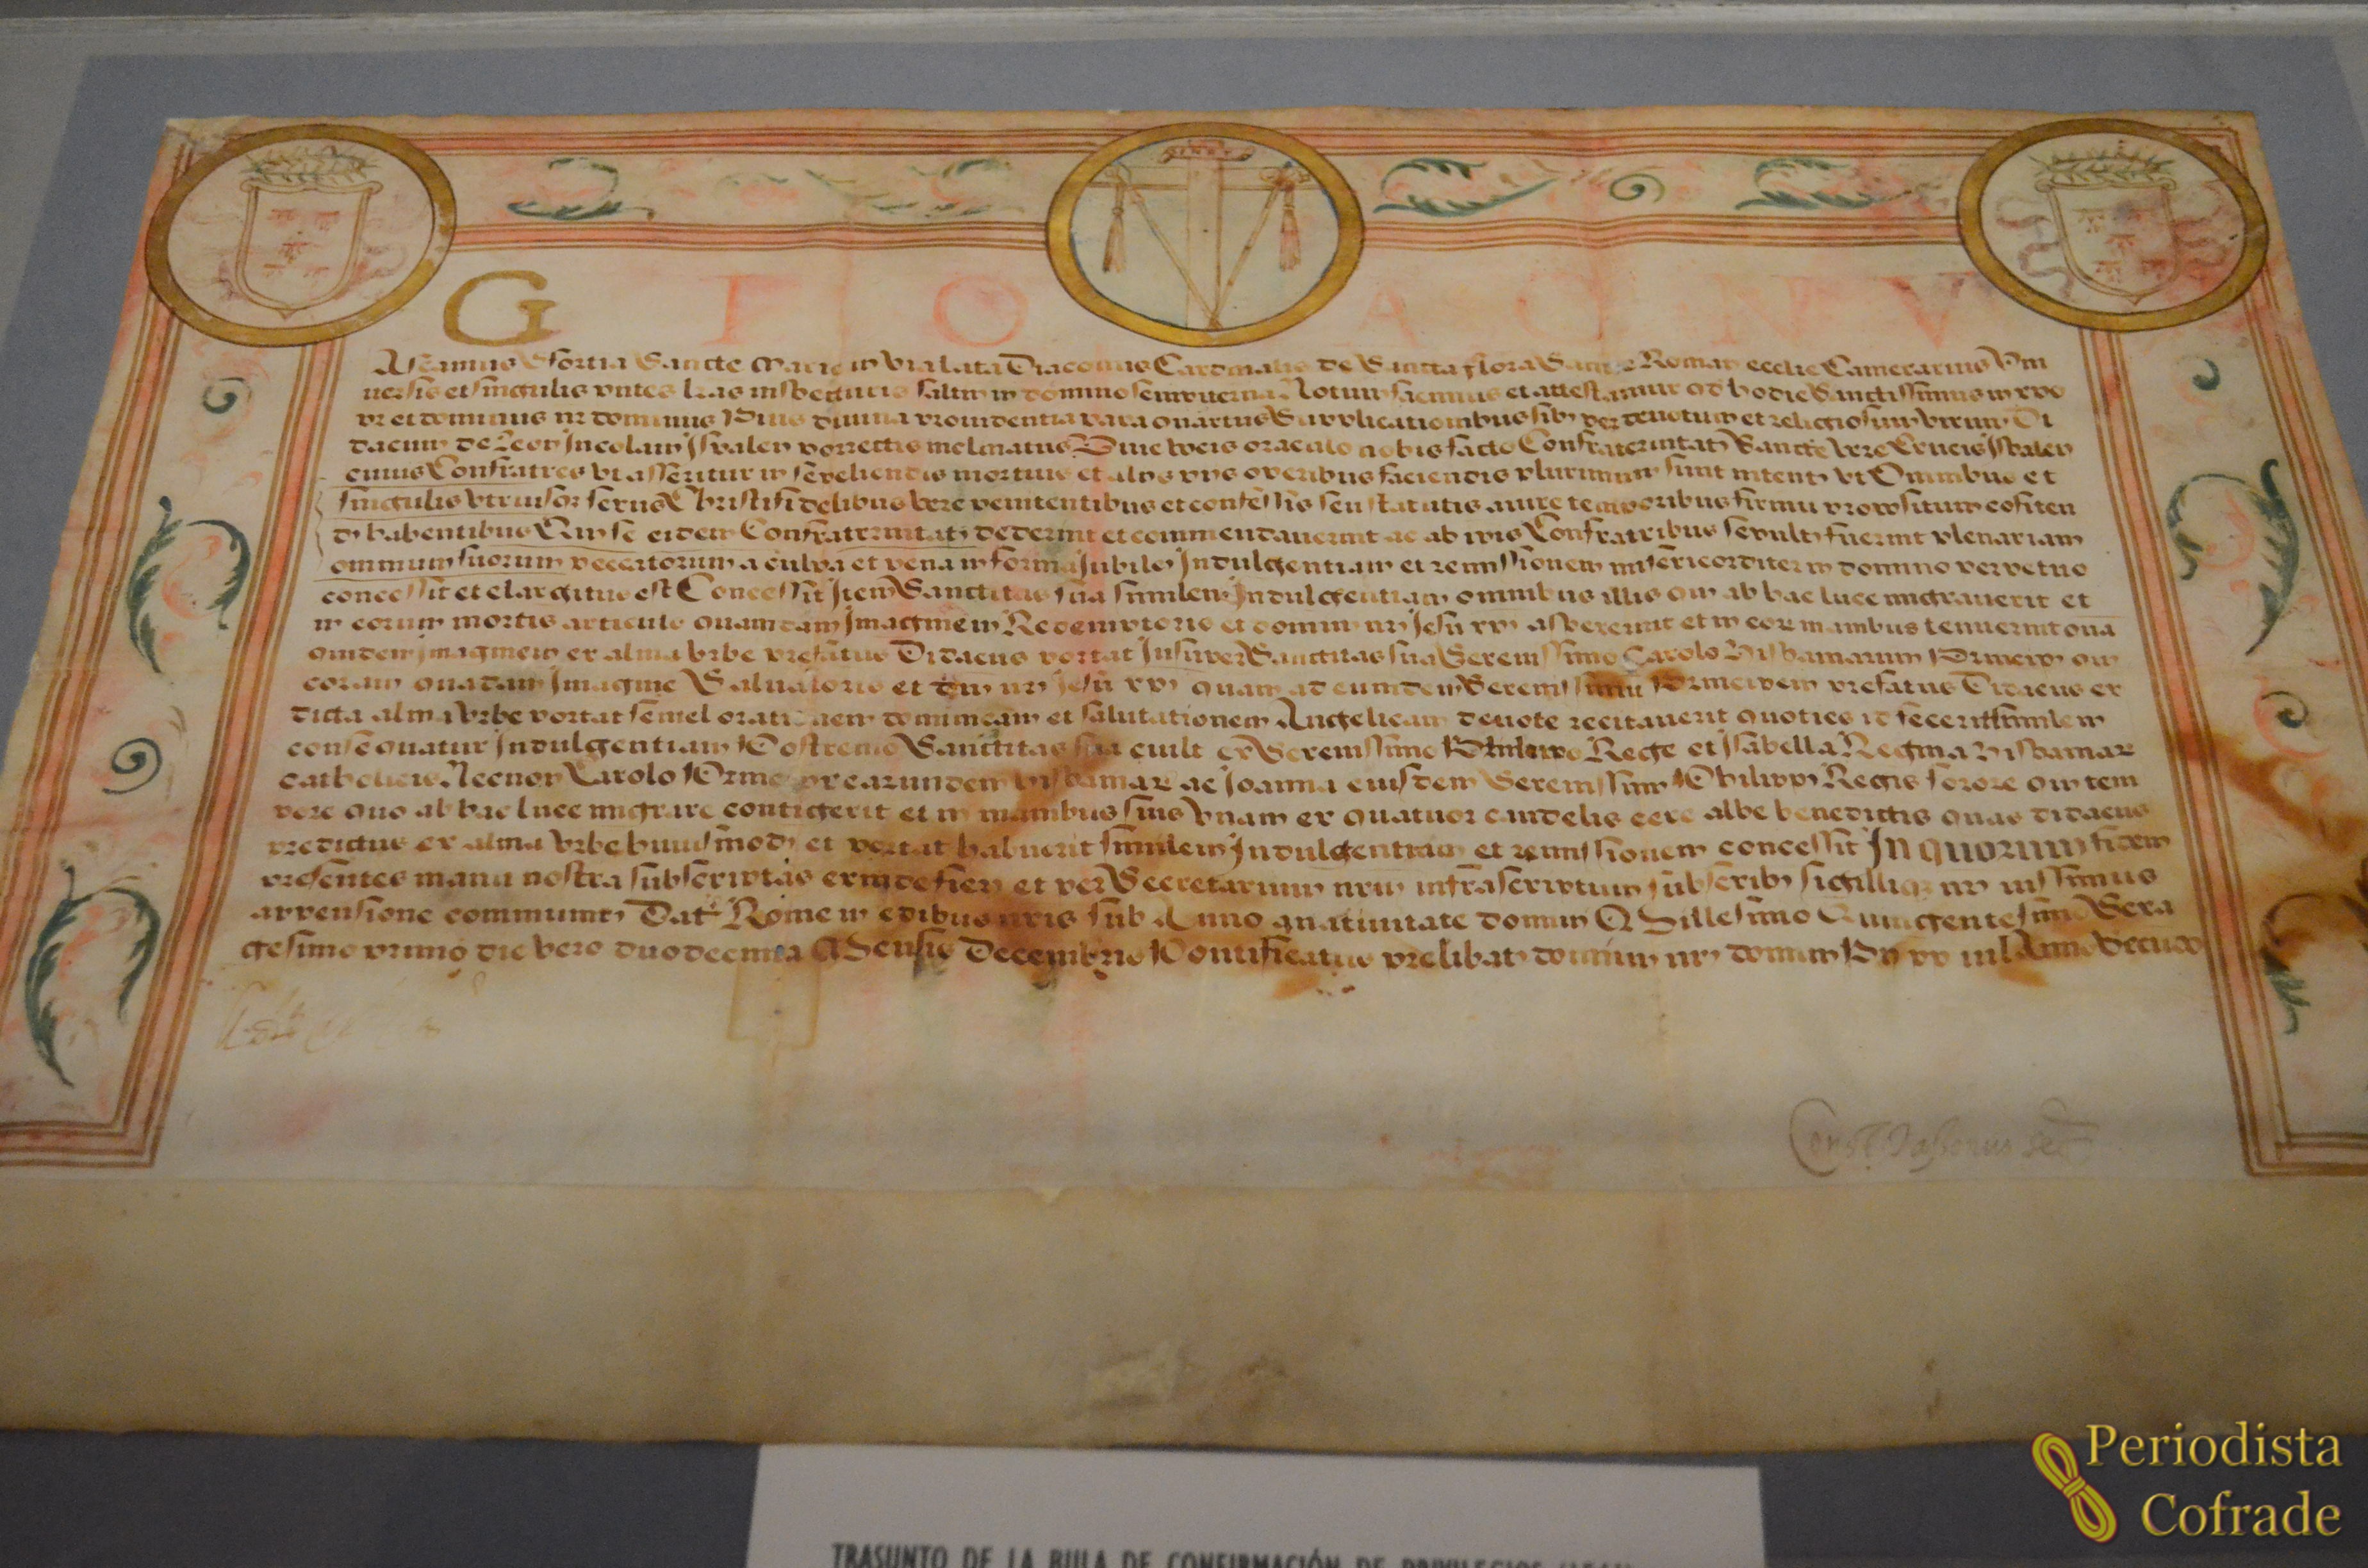 G I O A C N V
Ascanius Sfortia Sancte Marie in Via lata Diaconus Cardinalis de Sancta flora Sancte Roman ecclie Camerarius Vni
uersis et singulis pntes lras inspecturis saltm in domino sempiterna Notum facimus et attestamur qd hodie Sanctissimus in xpo
pr et dominus nr dominus Pius diuina prouidentia papa quartus Supplicationibus sibi per deuotum et religiosum virum Di
dacum de Leon Incolam Ispalen porrectis inclinatus Viue vocis oraculo nobis facto Confraternitati Sancte Vere Crucis Ispalen
cuius Confratres vt asseritur in sepeliendis mortuis et alijs pijs operibus faciendis plurimum sunt intenti vt Omnibus et
singulis vtriusqz sexus Christifidelibus vere penitentibus et confessis seu statutis a iure temporibus firmu propositum cofiten
di habentibus Qui se eidem Confraternitati dederint et commendauerint ac ab ipsis Confratribus sepulti fuerint plenariam
omnium suorum peccatorum a culpa et pena in forma Jubilei Indulgentiam et remissionem misericorditer in domino perpetuo
concessit et elargitus est Concessit Item Sanctitas sua similem Indulgentiam omnibus illis qui ab hac luce migrauerit et
in eorum mortis articulo quamdam Imaginem Redemptoris et domini nri Jesu xpi aspexerint et in eor manibus tenuerint qua
quidem Imaginem ex alma vrbe prefatus Didacus portat Insuper Sanctitas sua Serenissimo Carolo Hispaniarum Principi qui
coram quadam Imagine Saluatoris et dni nri Jesu xpi quam ad eumdem Serenissimu Principem prefatus Didacus ex
dicta alma Vrbe portat semel orationem dominicam et salutationem Angelicam deuote recitauerit quoties id fecerit similem
consequatur Indulgentiam Postremo Sanctitas sua cuilt ex Serenissimo Philippo Rege et Isabella Regina Hispaniar
catholicis Necnon Carolo Princ pe earundem hispaniar ac Joanna eiusdem Serenissimi Philippi Regis sorore qui tem
pore quo ab hac luce migrare contigerit et in manibus suis Vnam ex quatuor candelis cere albe benedictis quas didacus
predictus ex alma vrbe huiusmodi et portat habuerit similem Indulgentiam et remissionem concessit In quorum fidem
presentes manu nostra subscriptas exinde fieri et per Secretarium nrm infrascriptum subscribi sigilliqz nri iussimus
appensione communiri Dat Rome in edibus nris sub Anno a natiuitate domini Millesimo Quingentesimo Sexa
gesimo primo die vero duodecima Mensis Decembris Pontificatus prelibati domini nri domini Pij pp iiij Anno Secundo
Const Passionus Sec
TRASUNTO DE LA BULA DE CONFIRMACIÓN DE PRIVILEGIOS
Periodista
Cofrade